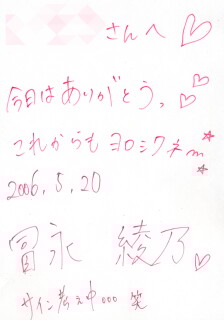 さんへ♡
今日はありがとう。♡♡
これからもヨロシクネm☆☆
2006.5.20
冨永 綾乃♡
サイン考え中ooo 笑